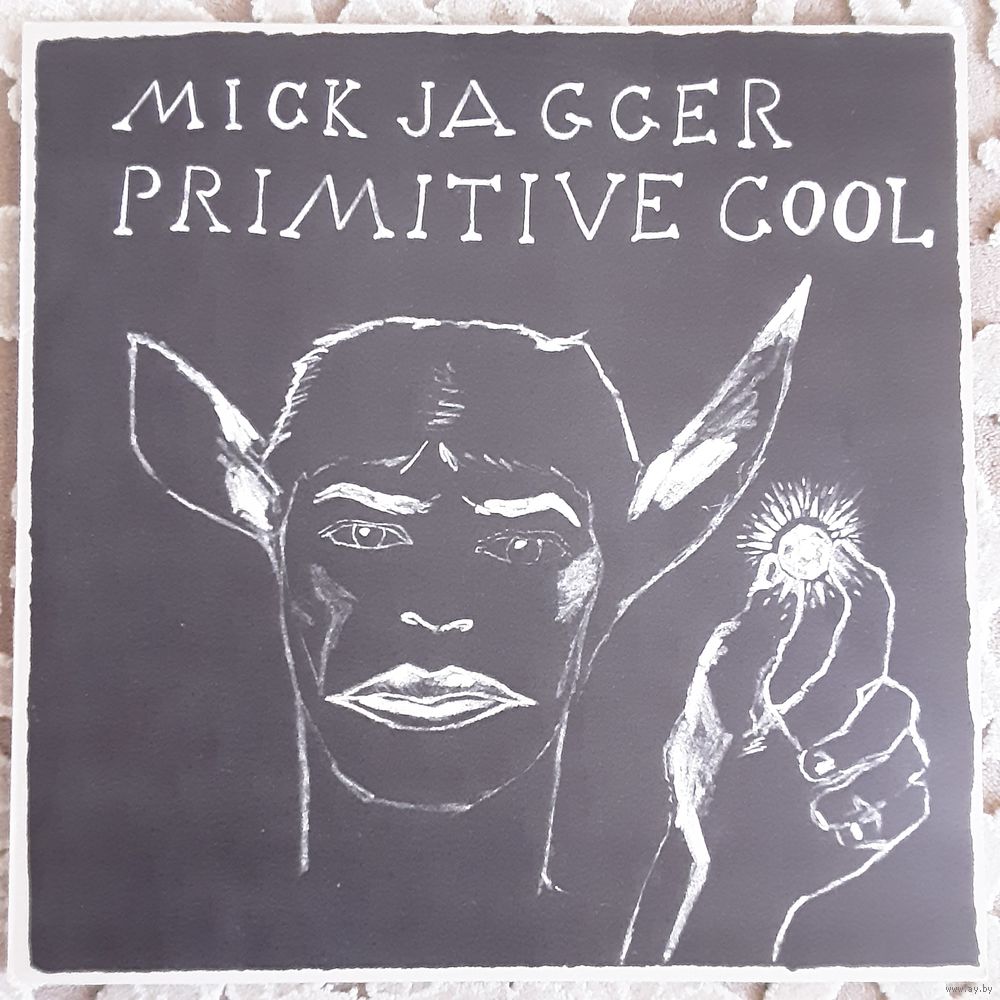 MICK JAGGER
PRIMITIVE COOL
www.ay.by